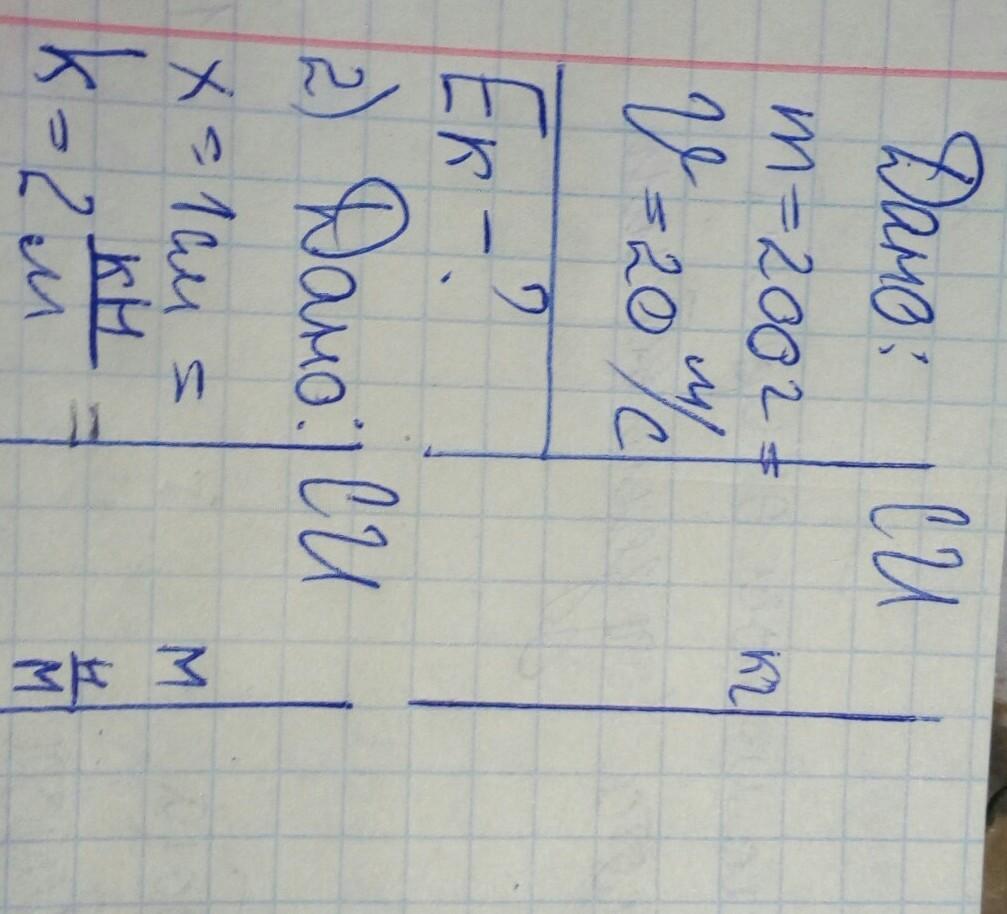 Дано: СИ
m = 200 г = кг
V = 20 м/с
Eк - ?
2) Дано: СИ
x = 1 см = м
K = 2 кН/м = Н/м